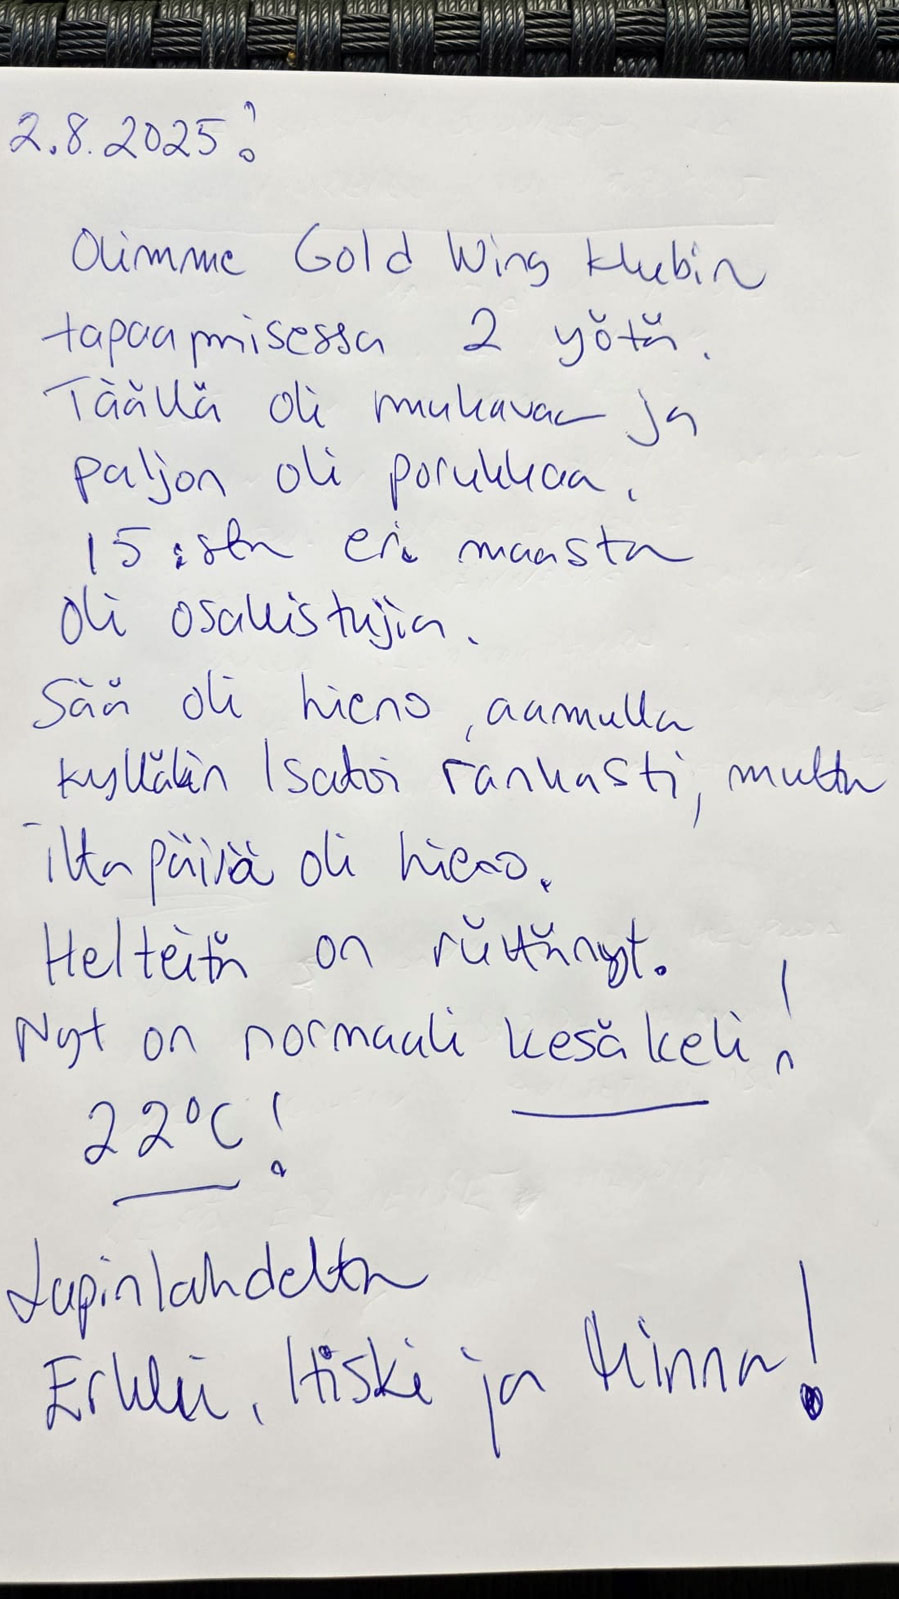 2.8.2025!
Olimme Gold Wing klubin
tapaamisessa 2 yötä.
Täällä oli mukavaa ja
paljon oli porukkaa.
15:sta eri maasta
oli osallistujia.
Sää oli hieno, aamulla
kylläkin satoi rankasti, mutta
iltapäivä oli hieno.
Helteitä on riittänyt.
Nyt on normaali kesäkeli!
22°C!
Lapinlahdelta
Erkki, Hiski ja